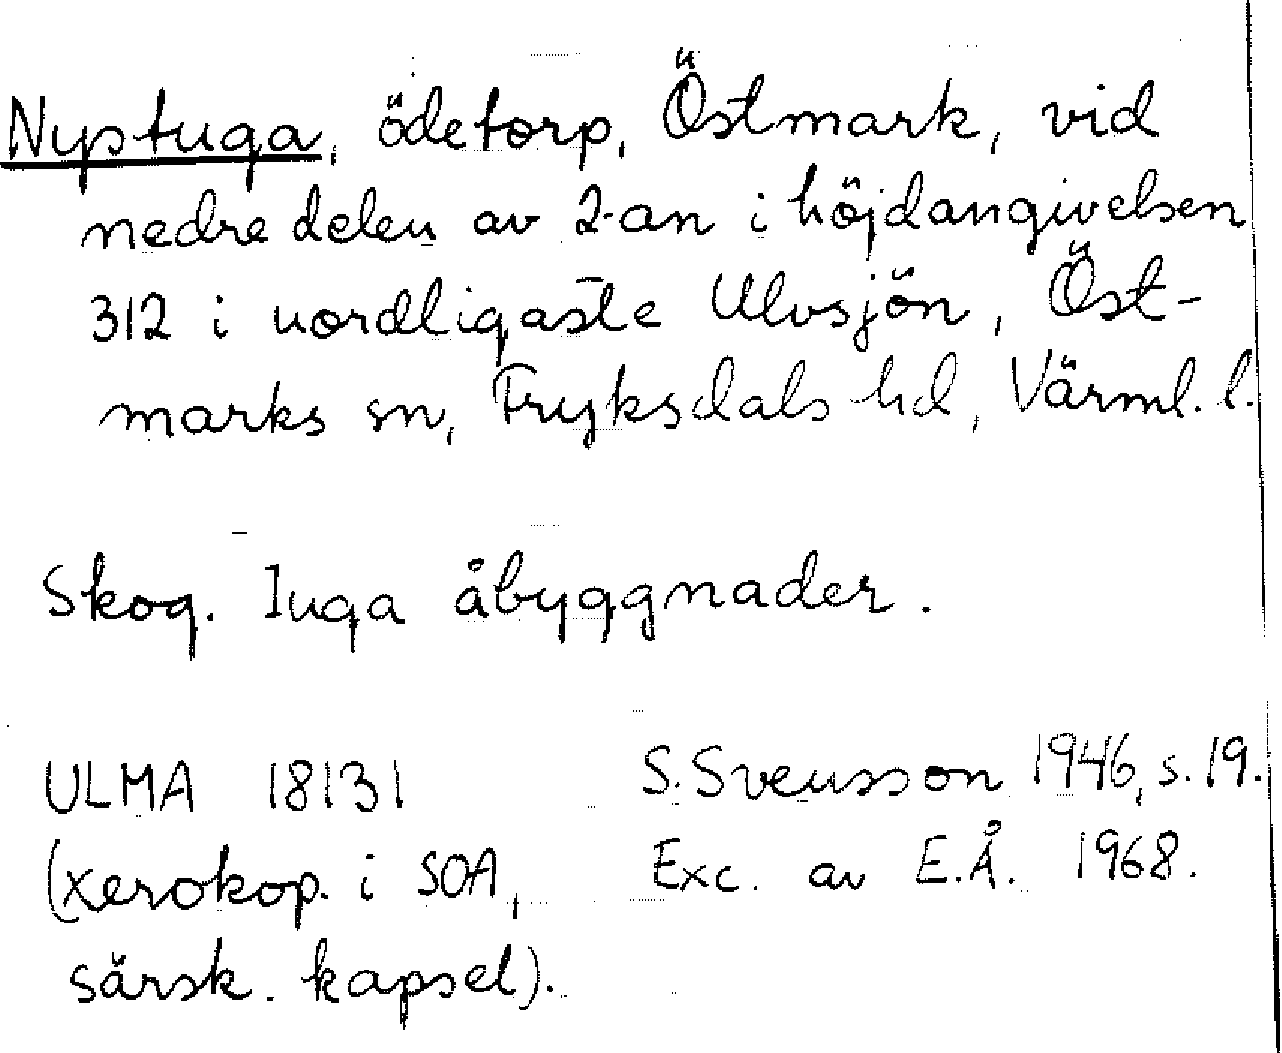 Nystuga, ödetorp, Östmark, vid
nedre delen av 2-an i höjdangivelsen
312 i nordligaste Ulvsjön, Öst-
marks sn, Fryksdals hd, Värml. l.
Skog. Inga åbyggnader.
ULMA 18131 S. Svensson 1946, s. 19.
(xerokop. i SOA, Exc. av E.Å. 1968.
särsk. kapsel).